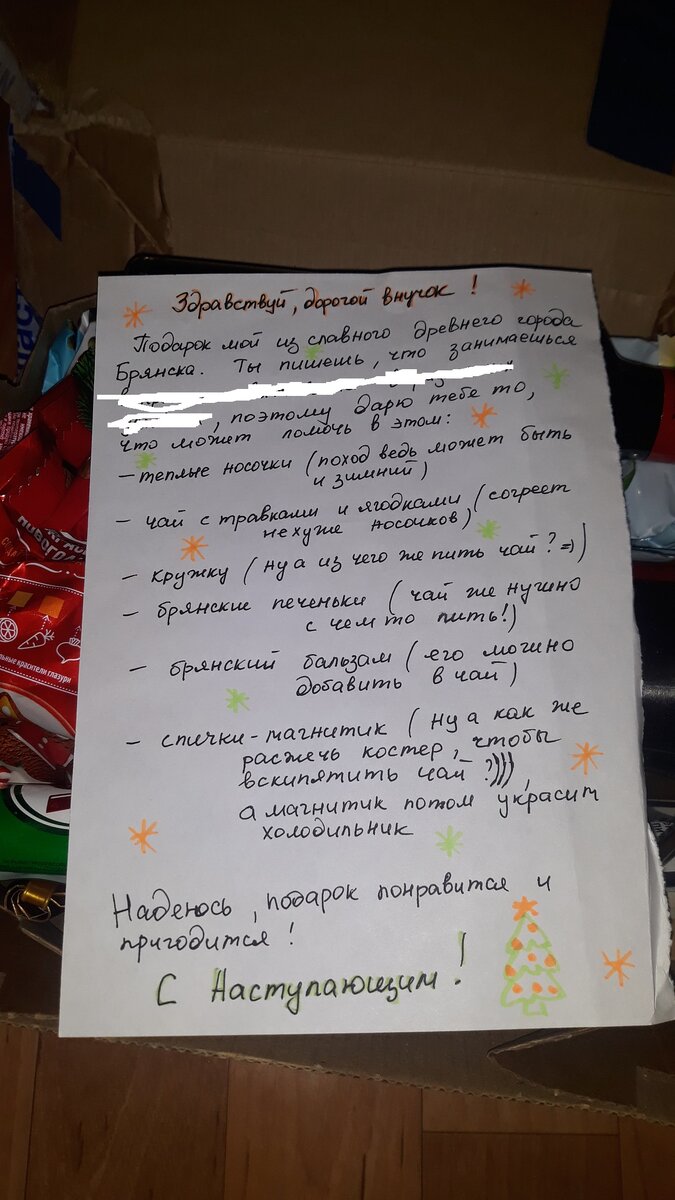 Здравствуй, дорогой внучок !
Подарок мой из славного древнего города
Брянска. Ты пишешь, что занимаешься
, поэтому дарю тебе то,
что может помочь в этом:
– теплые носочки (поход ведь может быть
и зимний)
– чай с травками и ягодками (согреет
не хуже носочков)
– кружку (ну а из чего же пить чай? =)
– брянские печеньки (чай же нужно
с чем то пить!)
– брянский бальзам (его можно
добавить в чай)
– спички-магнитик (ну а как же
разжечь костер, чтобы
вскипятить чай?)))),
а магнитик потом украсит
холодильник
Надеюсь, подарок понравится и
пригодится!
С Наступающим!
льные красители глазури